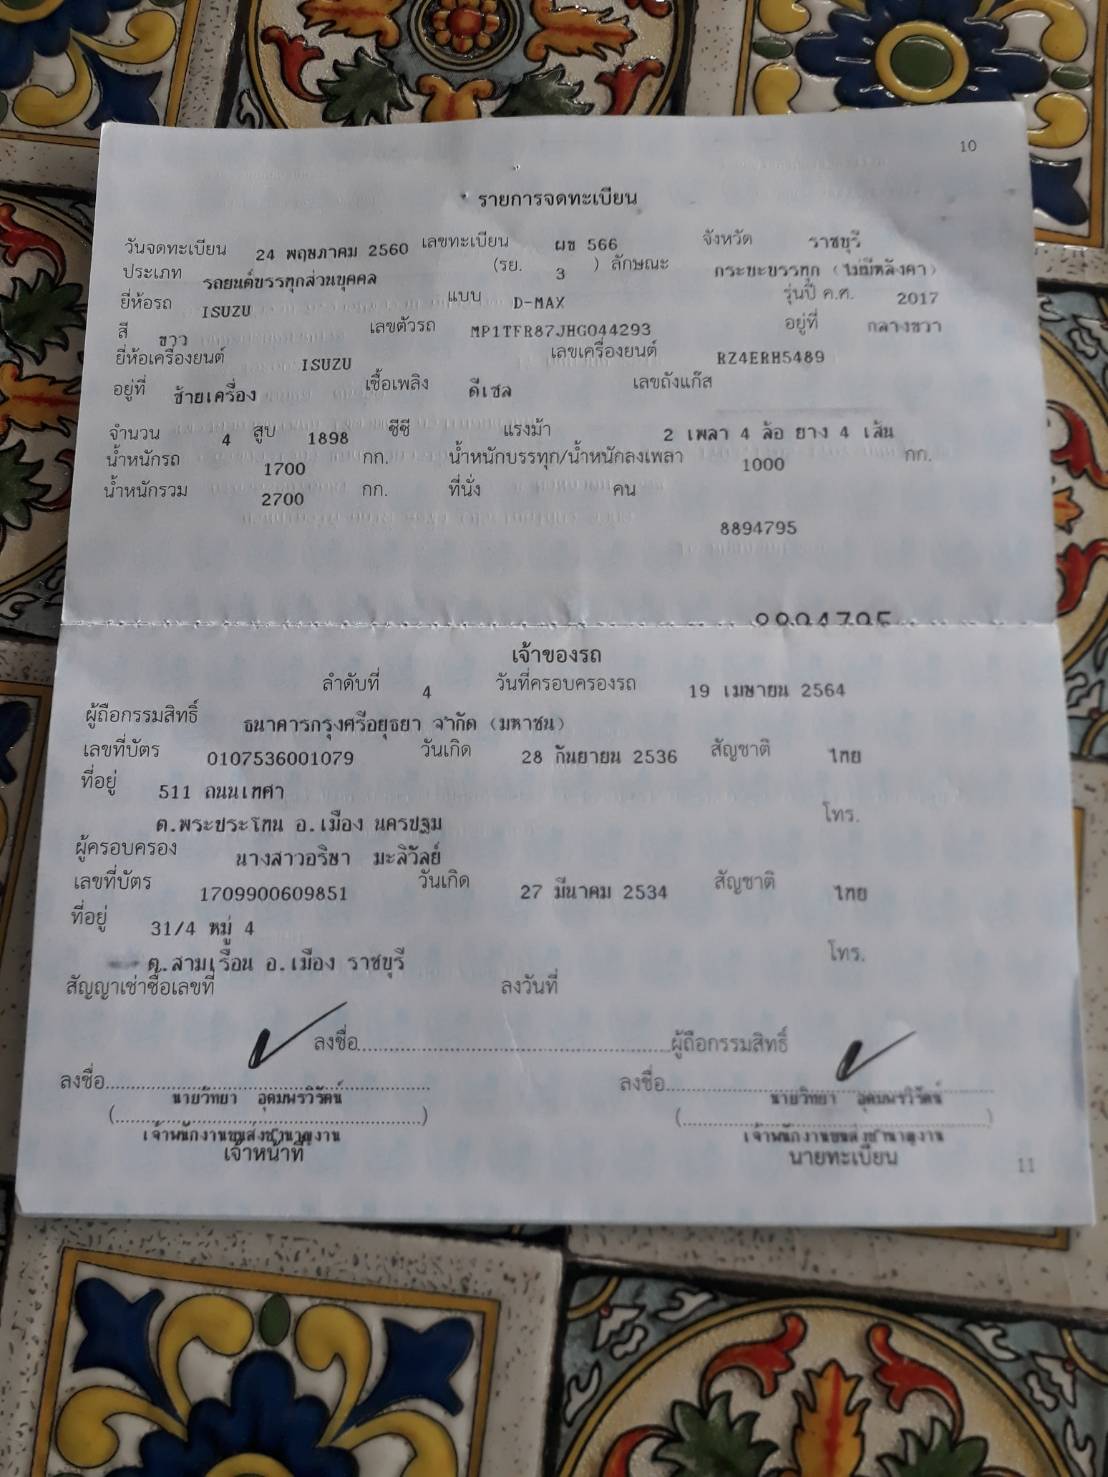 10
รายการจดทะเบียน
วันจดทะเบียน 24 พฤษภาคม 2560 เลขทะเบียน ผข 566 จังหวัด ราชบุรี
ประเภท รถยนต์บรรทุกส่วนบุคคล (รย. 3 ) ลักษณะ กระบะบรรทุก (ไม่มีหลังคา)
ยี่ห้อรถ ISUZU แบบ D-MAX รุ่นปี ค.ศ. 2017
สี ขาว เลขตัวรถ MP1TFR87JHG044293 อยู่ที่ กลางขวา
ยี่ห้อเครื่องยนต์ ISUZU เลขเครื่องยนต์ RZ4ERH5489
อยู่ที่ ซ้ายเครื่อง เชื้อเพลิง ดีเซล เลขถังแก๊ส
จำนวน 4 สูบ 1898 ซีซี แรงม้า 2 เพลา 4 ล้อ ยาง 4 เส้น
น้ำหนักรถ 1700 กก. น้ำหนักบรรทุก/น้ำหนักลงเพลา 1000 กก.
น้ำหนักรวม 2700 กก. ที่นั่ง คน
8894795
8894795
เจ้าของรถ
ลำดับที่ 4 วันที่ครอบครองรถ 19 เมษายน 2564
ผู้ถือกรรมสิทธิ์ ธนาคารกรุงศรีอยุธยา จำกัด (มหาชน)
เลขที่บัตร 0107536001079 วันเกิด 28 กันยายน 2536 สัญชาติ ไทย
ที่อยู่ 511 ถนนเทศา
ต.พระประโทน อ.เมือง นครปฐม โทร.
ผู้ครอบครอง นางสาวอริษา มะลิวัลย์
เลขที่บัตร 1709900609851 วันเกิด 27 มีนาคม 2534 สัญชาติ ไทย
ที่อยู่ 31/4 หมู่ 4
ต.สามเรือน อ.เมือง ราชบุรี โทร.
สัญญาเช่าซื้อเลขที่ ลงวันที่
ลงชื่อ ผู้ถือกรรมสิทธิ์
ลงชื่อ ลงชื่อ
( นายวิทยา อุดมพรวิรัตน์ ) ( นายวิทยา อุดมพรวิรัตน์ )
เจ้าพนักงานขนส่งชำนาญงาน เจ้าพนักงานขนส่งชำนาญงาน
เจ้าหน้าที่ นายทะเบียน
11